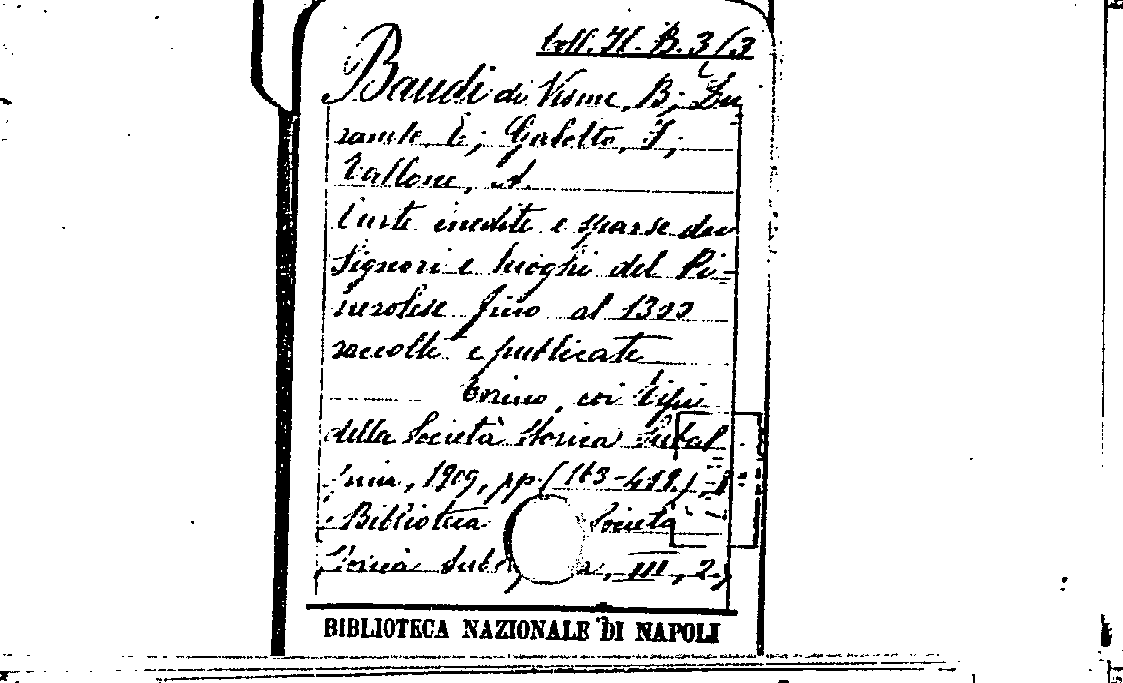 Coll. It. B. 3/3
Baudi di Vesme, B; Du
rando E; Gabotto, F;
Vallone, A.
Carte inedite e sparse dei
Signori e luoghi del Pi-
nerolese fino al 1300
raccolte e pubblicate
Torino, coi tipi
della Società Storica Subal
pina, 1909, pp. (163-
Biblioteca Società
Storica Sub III, 2.)
BIBLIOTECA NAZIONALE DI NAPOLI